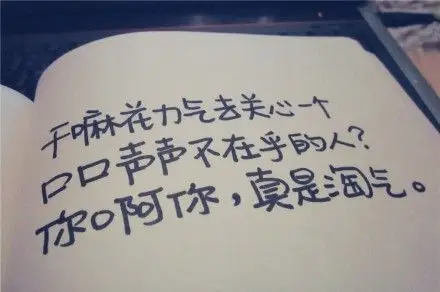 干嘛花力气去关心一个
口口声声不在乎的人?
你啊你,真是淘气。